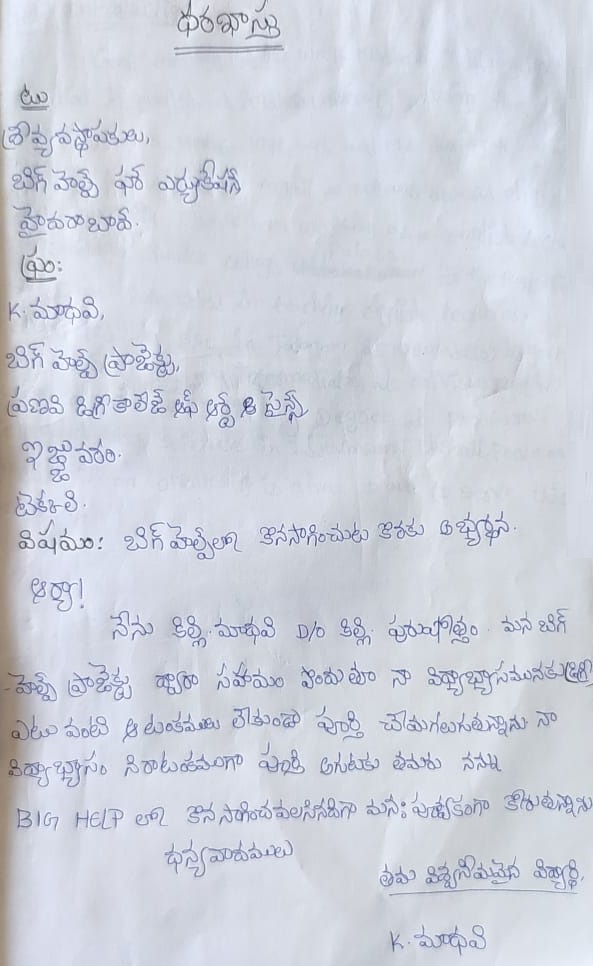 ధరఖాస్తు
టు
శ్రీ వ్యవస్థాపకులు,
బిగ్ హెల్ప్ ఫర్ ఎడ్యుకేషన్
హైదరాబాద్.
ఫ్రం:
K. మాధవి,
బిగ్ హెల్ప్ ప్రాజెక్టు,
ప్రణవి డిగ్రీ కాలేజ్ ఆఫ్ ఆర్ట్ & సైన్స్
ఇజ్జువరం.
టెక్కలి.
విషయం: బిగ్ హెల్ప్‌లో కొనసాగించుట కొరకు అభ్యర్థన.
ఆర్యా!
నేను కిల్లి. మాధవి D/O కిల్లి. పురుషోత్తం. మన బిగ్
హెల్ప్ ప్రాజెక్టు ద్వారా సహాయం పొందుతూ నా విద్యాభ్యాసమునకు
ఎటు వంటి ఆటంకములు లేకుండా పూర్తి చేయగలుగుతున్నాను నా
విద్యాభ్యాసం నిరాటంకమంగా పూర్తి అగుటకు తమరు నన్ను
BIG HELP లో కొన సాగించవలసినదిగా మనః పూర్వకంగా కోరుతున్నాను
ధన్యవాదములు
తమ విశ్వసనీయమైన విద్యార్థి,
K. మాధవి